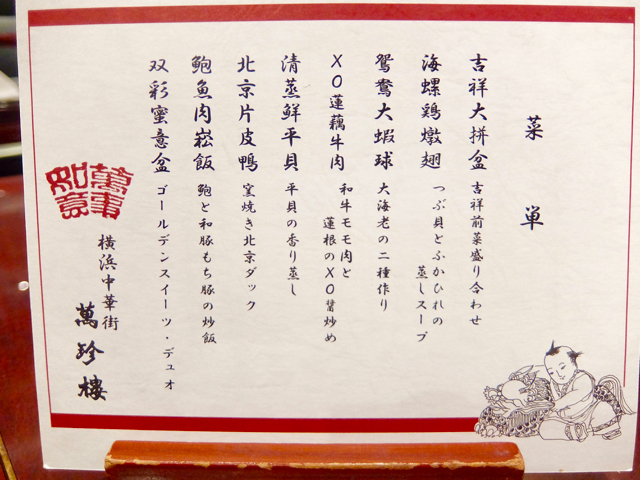 菜単
吉祥大拼盆 吉祥前菜盛り合わせ
海螺鶏燉翅 つぶ貝とふかひれの
蒸しスープ
鴛鴦大蝦球 大海老の二種作り
XO蓮藕牛肉 和牛モモ肉と
蓮根のXO醤炒め
清蒸鮮平貝 平貝の香り蒸し
北京片皮鴨 窯焼き北京ダック
鮑魚肉崧飯 鮑と和豚もち豚の炒飯
双彩蜜意盆 ゴールデンスイーツ・デュオ
横浜中華街
萬珍樓
萬事
如意